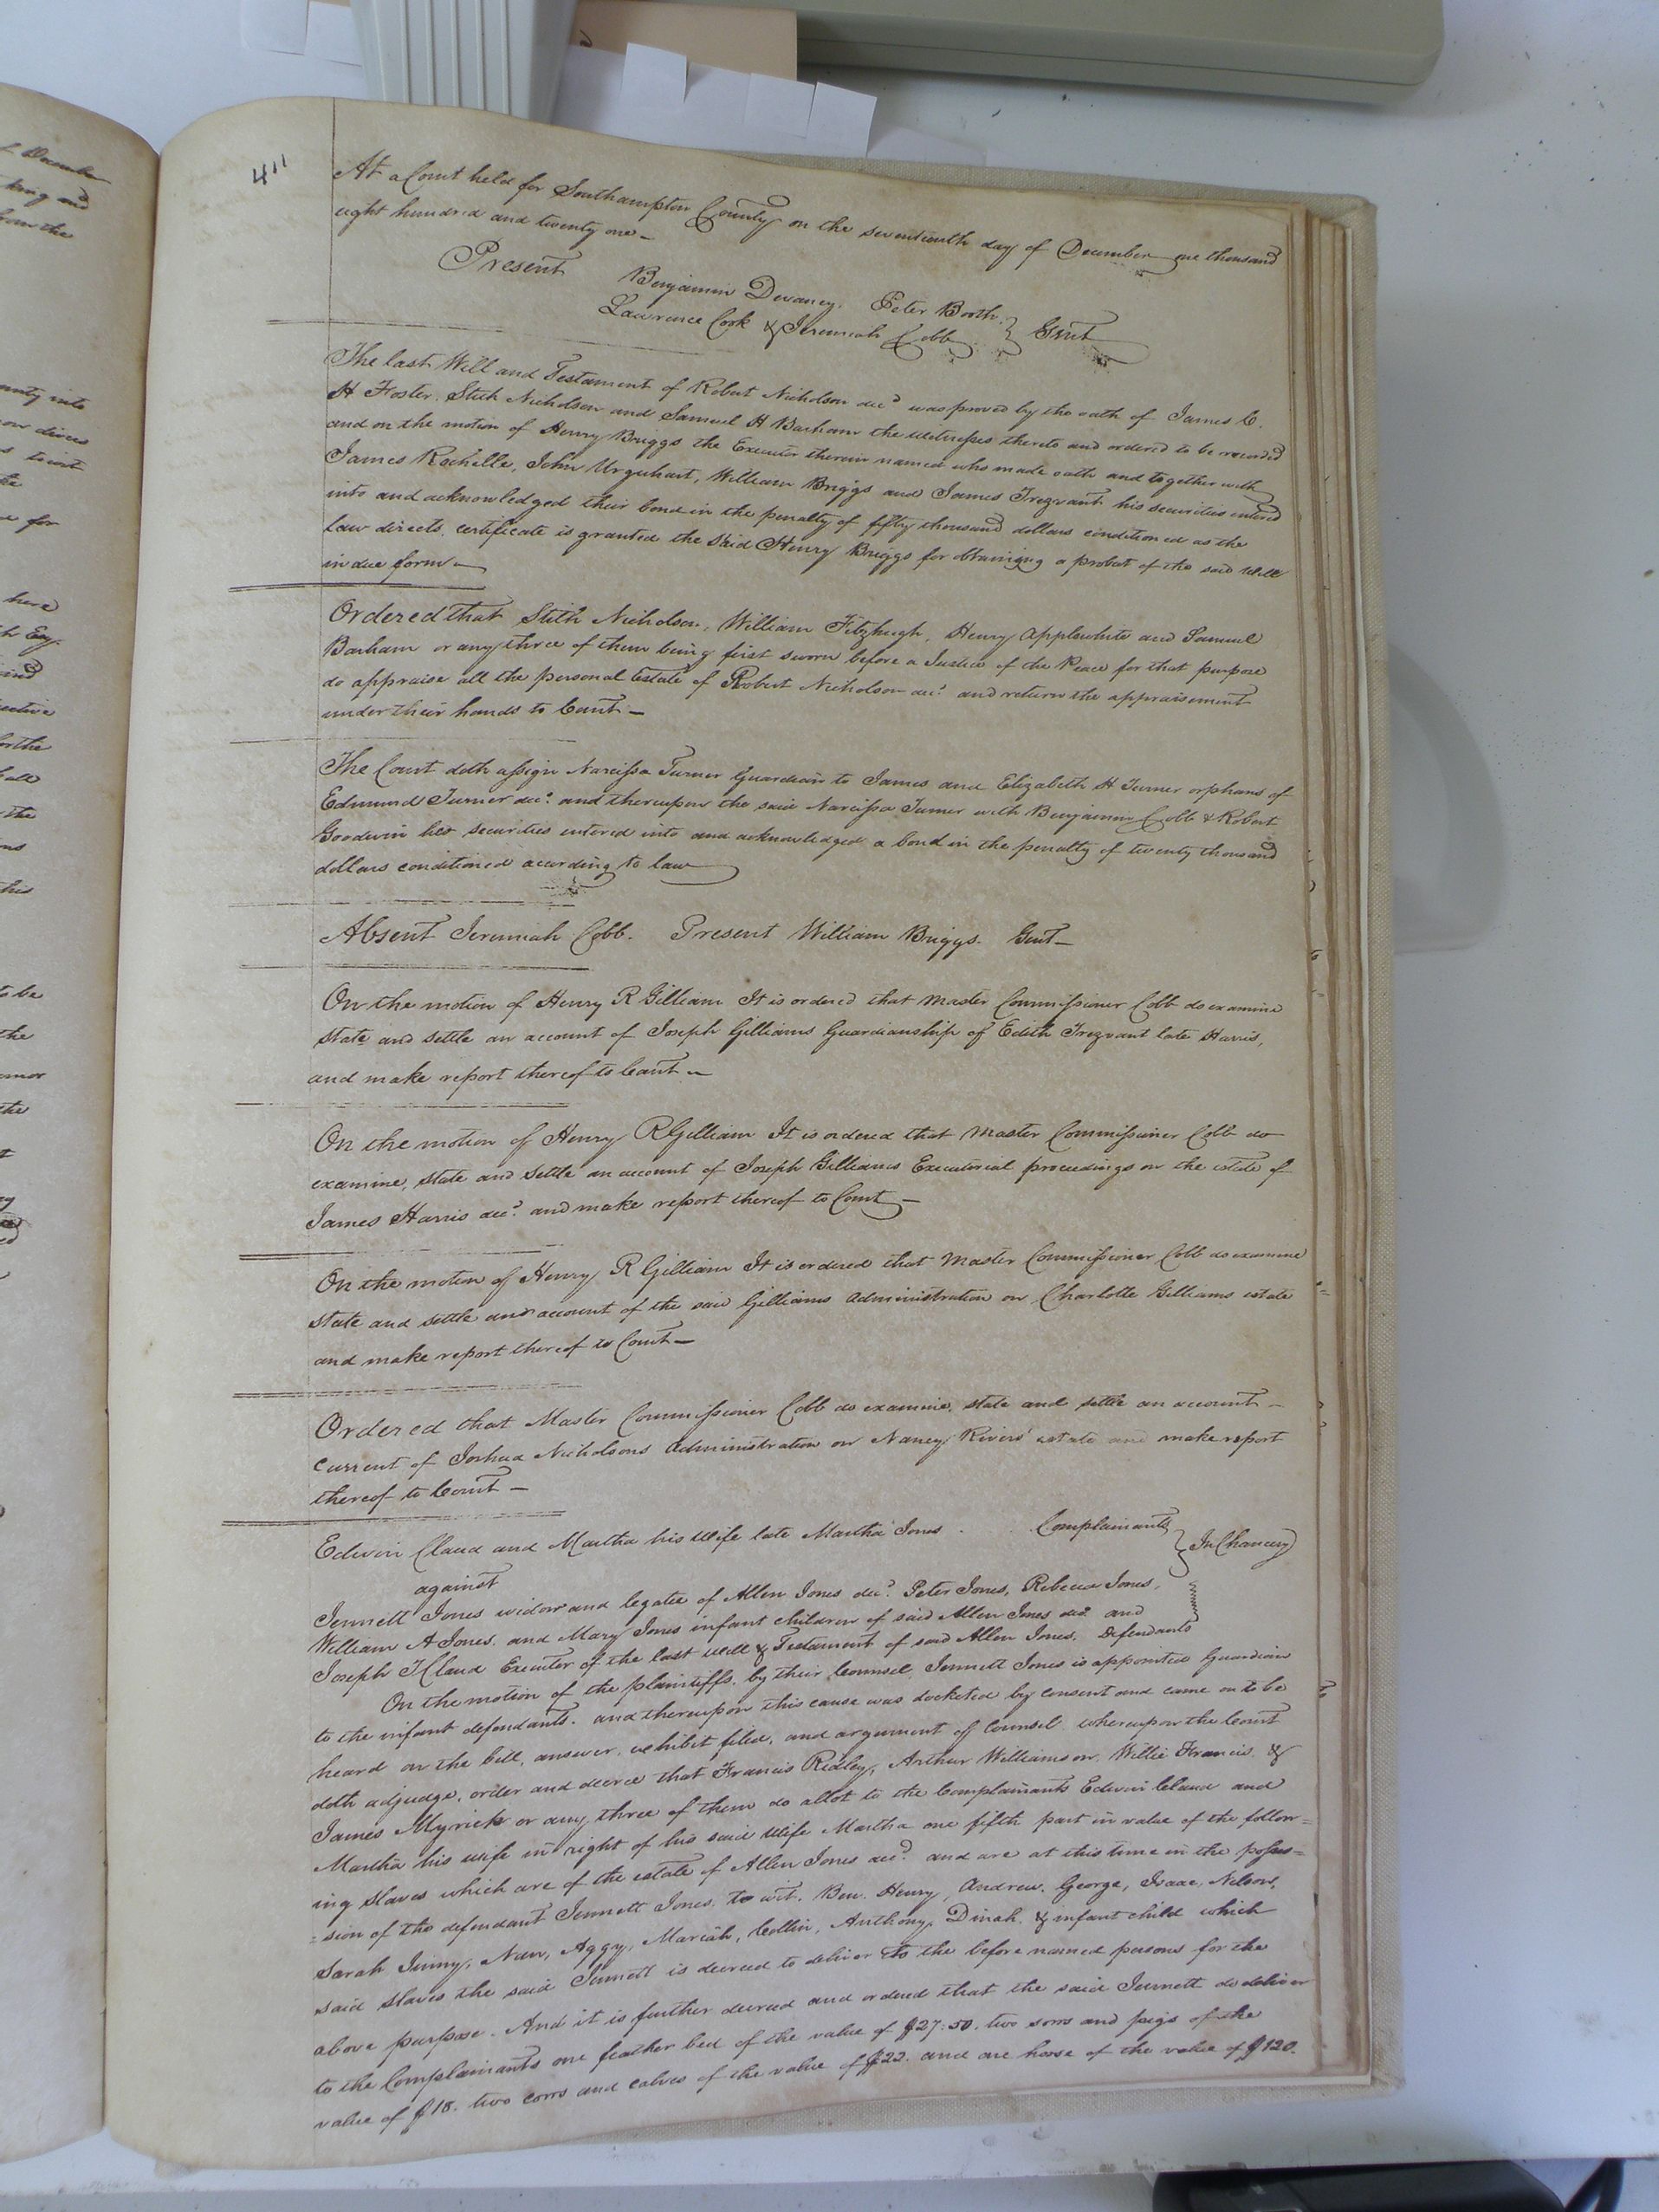 411
At a Court held for Southampton County on the seventeenth day of December one thousand
eight hundred and twenty one
Present Benjamin Devaney, Peter Booth,
Lawrence Cook & Jeremiah Cobb } Gent
The last Will and Testament of Robert Nicholson decd was proved by the oath of James C.
H Foster, Stith Nicholson and Samuel H Barham the witnesses thereto and ordered to be recorded
and on the motion of Henry Briggs the Executor therein named who made oath and together with
James Rochelle, John Urquhart, William Briggs and James Trezvant his securities entered
into and acknowledged their bond in the penalty of fifty thousand dollars conditioned as the
law directs, certificate is granted the said Henry Briggs for obtaining a probat of the said Will
in due form
Ordered that Stith Nicholson, William Fitzhugh, Henry Applewhite and Samuel
Barham or any three of them being first sworn before a Justice of the Peace for that purpose
do appraise all the personal Estate of Robert Nicholson decd and return the appraisement
under their hands to Court
The Court doth assign Narcissa Turner Guardian to James and Elizabeth H Turner orphans of
Edmund Turner decd and thereupon the said Narcissa Turner with Benjamin Cobb & Robert
Goodwin her securities entered into and acknowledged a bond in the penalty of twenty thousand
dollars conditioned according to law
Absent Jeremiah Cobb. Present William Briggs. Gent
On the motion of Henry R Gilliam It is ordered that Master Commissioner Cobb do examine
state and settle an account of Joseph Gilliams Guardianship of Edith Trezvant late Harris,
and make report thereof to Court
On the motion of Henry R Gilliam It is ordered that Master Commissioner Cobb do
examine, state and settle an account of Joseph Gilliams Executorial proceedings on the estate of
James Harris decd and make report thereof to Court
On the motion of Henry R Gilliam It is ordered that Master Commissioner Cobb do examine
state and settle and account of the said Gilliams administration on Charlotte Gilliams estate
and make report thereof to Court
Ordered that Master Commissioner Cobb do examine, state and settle an account
current of Joshua Nicholsons administration on Nancy Rivers' estate and make report
thereof to Court
Edwin Claud and Martha his wife late Martha Jones . . Complainants } In Chancery
against
Jennett Jones widow and legatee of Allen Jones decd. Peter Jones, Rebecca Jones,
William A Jones, and Mary Jones infant children of said Allen Jones decd and
Joseph Claud Executor of the last will & Testament of said Allen Jones, Defendants
On the motion of the plaintiffs, by their Counsel, Jennett Jones is appointed Guardian
to the infant defendants. and thereupon this cause was docketed by consent and came on to be
heard on the bill, answer, exhibit filed, and argument of Counsel. whereupon the Court
doth adjudge, order and decree that Francis Ridley, Arthur Williamson, Willie Francis, &
James Myrick or any three of them do allot to the Complainants Edwin Claud and
Martha his wife in right of his said wife Martha one fifth part in value of the follow=
ing slaves which are of the estate of Allen Jones decd and are at this time in the posses=
=sion of the defendant Jennett Jones, to wit, Ben. Henry, Andrew, George, Isaac, Nelson,
Sarah Jinny, Nan, Aggy, Mariah, Collin, Anthony, Dinah, & infant child which
said slaves the said Jennett is decreed to deliver to the before named persons for the
above purpose. And it is further decreed and ordered that the said Jennett do deliver
to the Complainants one feather bed of the value of $27:50. two sows and pigs of the
value of $18. two cows and calves of the value of $22. and one horse of the value of $120.